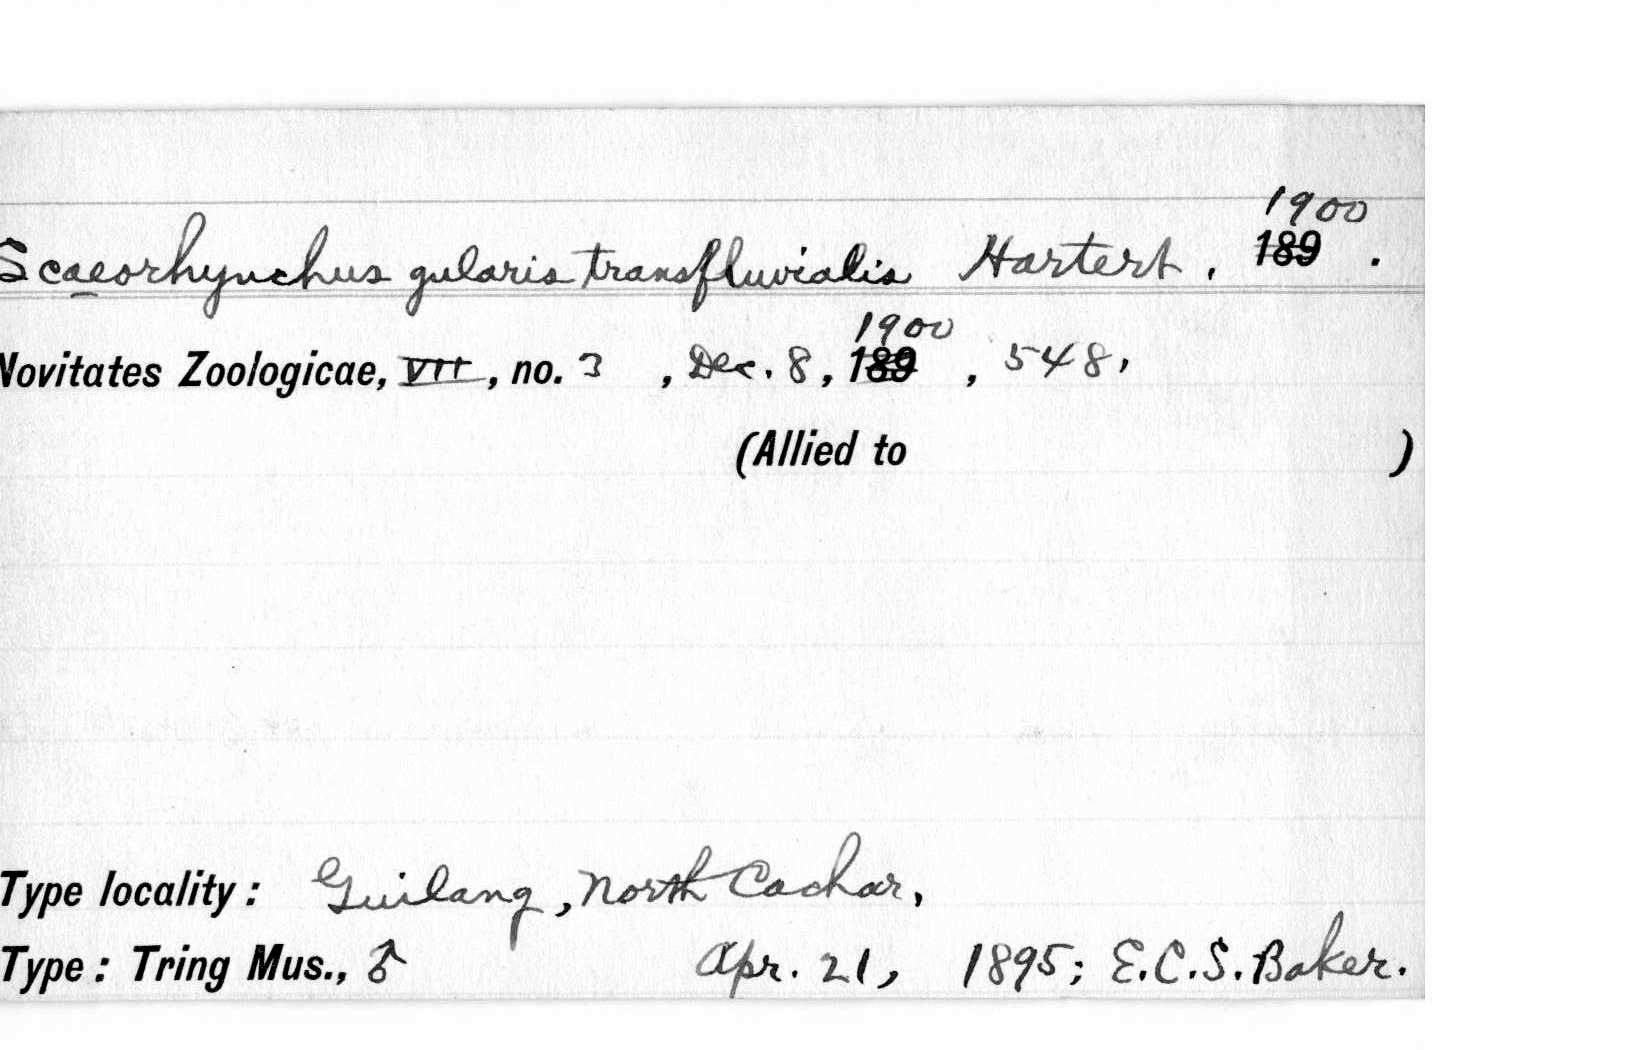 Scaeorhynchus gularis transfluvialis Hartert, 1900 189 .
Novitates Zoologicae, VII, no. 3 , Dec. 8, 1900 189 , 548,
(Allied to )
Type locality: Guilang, North Cachar,
Type: Tring Mus., ♂ Apr. 21, 1895; E.C.S. Baker.